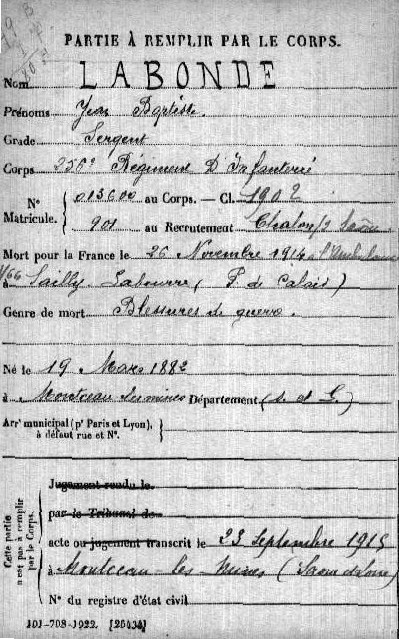 PARTIE À REMPLIR PAR LE CORPS.
Nom LABONDE
Prénoms Jean Baptiste.
Grade Sergent
Corps 256e Régiment D'Infanterie
N° Matricule. { 013600 au Corps. — Cl. 1902
901 au Recrutement Chalon s/ Saône
Mort pour la France le 26 Novembre 1914 à l'Ambulance
1/66 à Sailly Labourse (P. de Calais)
Genre de mort Blessures de guerre.
Né le 19 Mars 1882
à Montceau les mines Département (S. et L.)
Arrt municipal (pr Paris et Lyon), à défaut rue et N°.
Cette partie n'est pas à remplir par le Corps.
Jugement rendu le
par le Tribunal de
acte ou jugement transcrit le 23 Septembre 1915
à Montceau-les-Mines (Saône et Loire)
N° du registre d'état civil
101-708-1922. [26434]